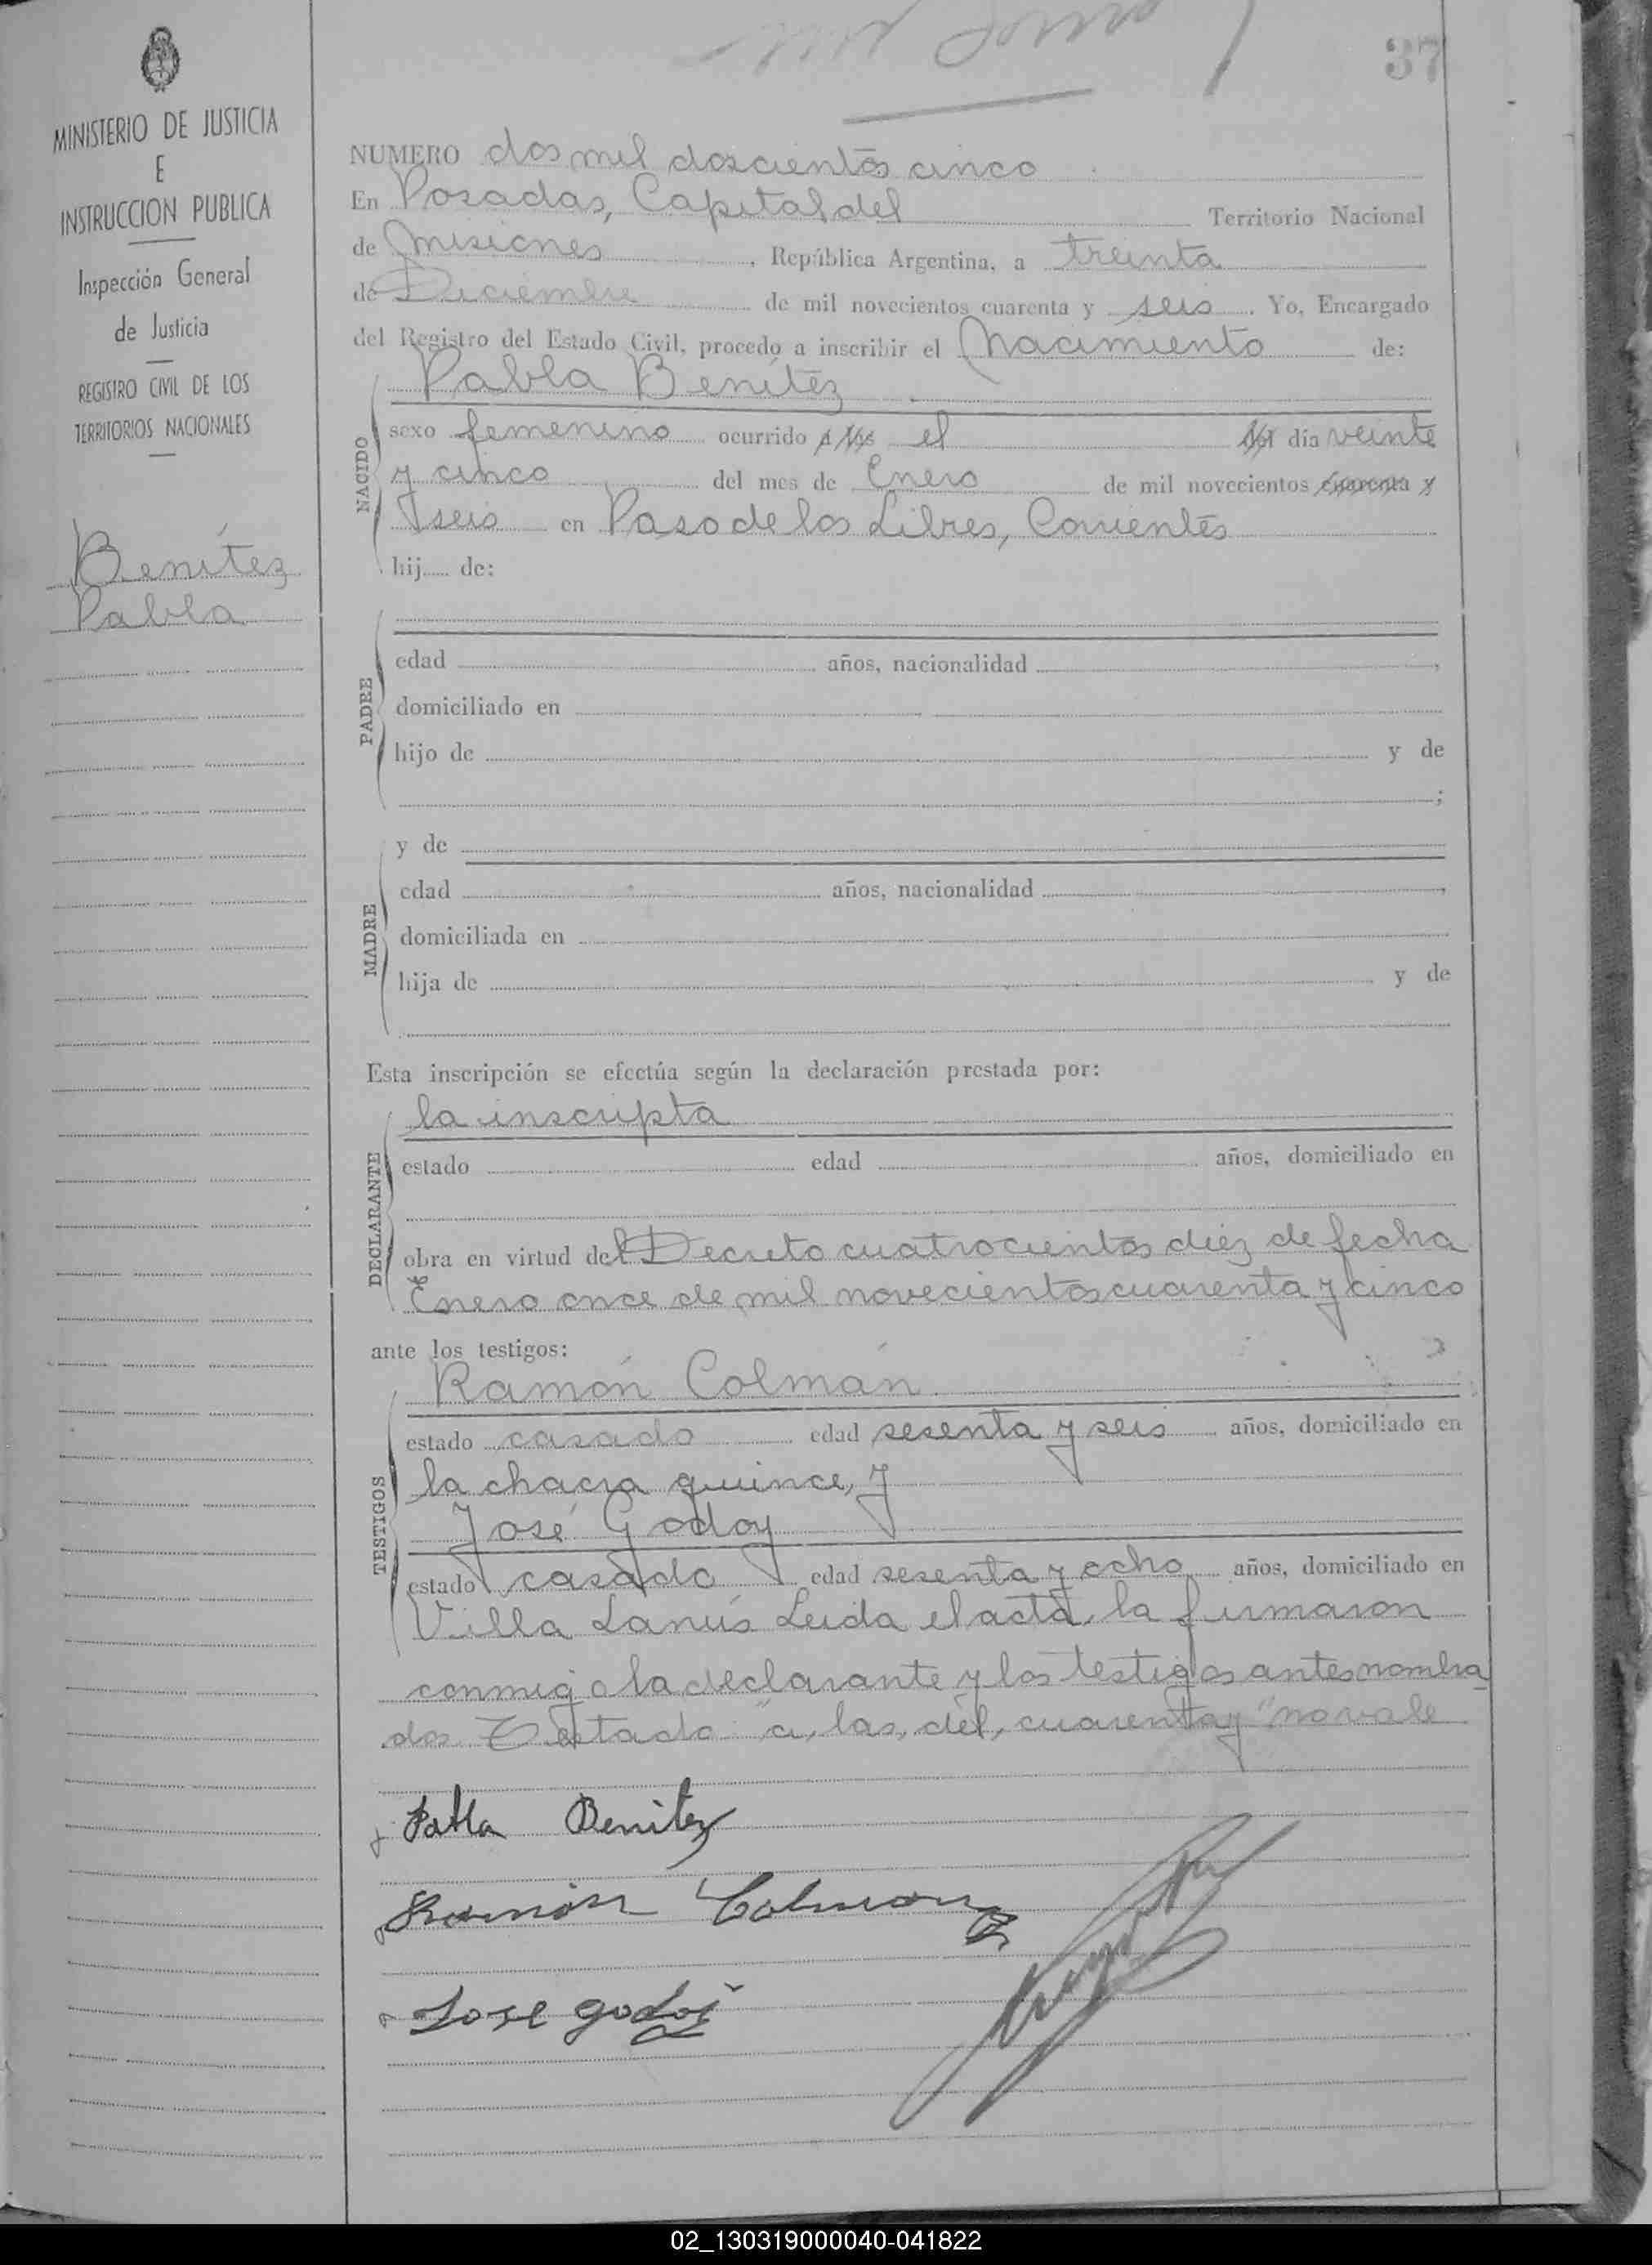 37
MINISTERIO DE JUSTICIA
E
INSTRUCCION PUBLICA
Inspección General
de Justicia
REGISTRO CIVIL DE LOS
TERRITORIOS NACIONALES
Benítez
Pabla
NUMERO dos mil doscientos cinco
En Posadas, Capital del Territorio Nacional
de Misiones, República Argentina, a treinta
de Diciembre de mil novecientos cuarenta y seis. Yo, Encargado
del Registro del Estado Civil, procedo a inscribir el Nacimiento de:
NACIDO
Pabla Benítez
sexo femenino ocurrido a las el del día veinte
y cinco del mes de Enero de mil novecientos cuarenta y
seis en Paso de los Libres, Corrientes
hij de:
PADRE
edad años, nacionalidad ,
domiciliado en
hijo de y de
;
MADRE
y de
edad años, nacionalidad ,
domiciliada en
hija de y de
Esta inscripción se efectúa según la declaración prestada por:
DECLARANTE
la inscripta
estado edad años, domiciliado en
obra en virtud del Decreto cuatrocientos diez de fecha
Enero once de mil novecientos cuarenta y cinco
ante los testigos:
TESTIGOS
Ramón Colmán
estado casado edad sesenta y seis años, domiciliado en
la chacra quince, y
José Godoy
estado casado edad sesenta y ocho años, domiciliado en
Villa Lanús Leida el acta, la firmaron
conmigo la declarante y los testigos antes nombra
dos Testado "a, las, del, cuarenta y" no vale
Pabla Benitez
Ramón Colman
Jose godoi
02_130319000040-041822